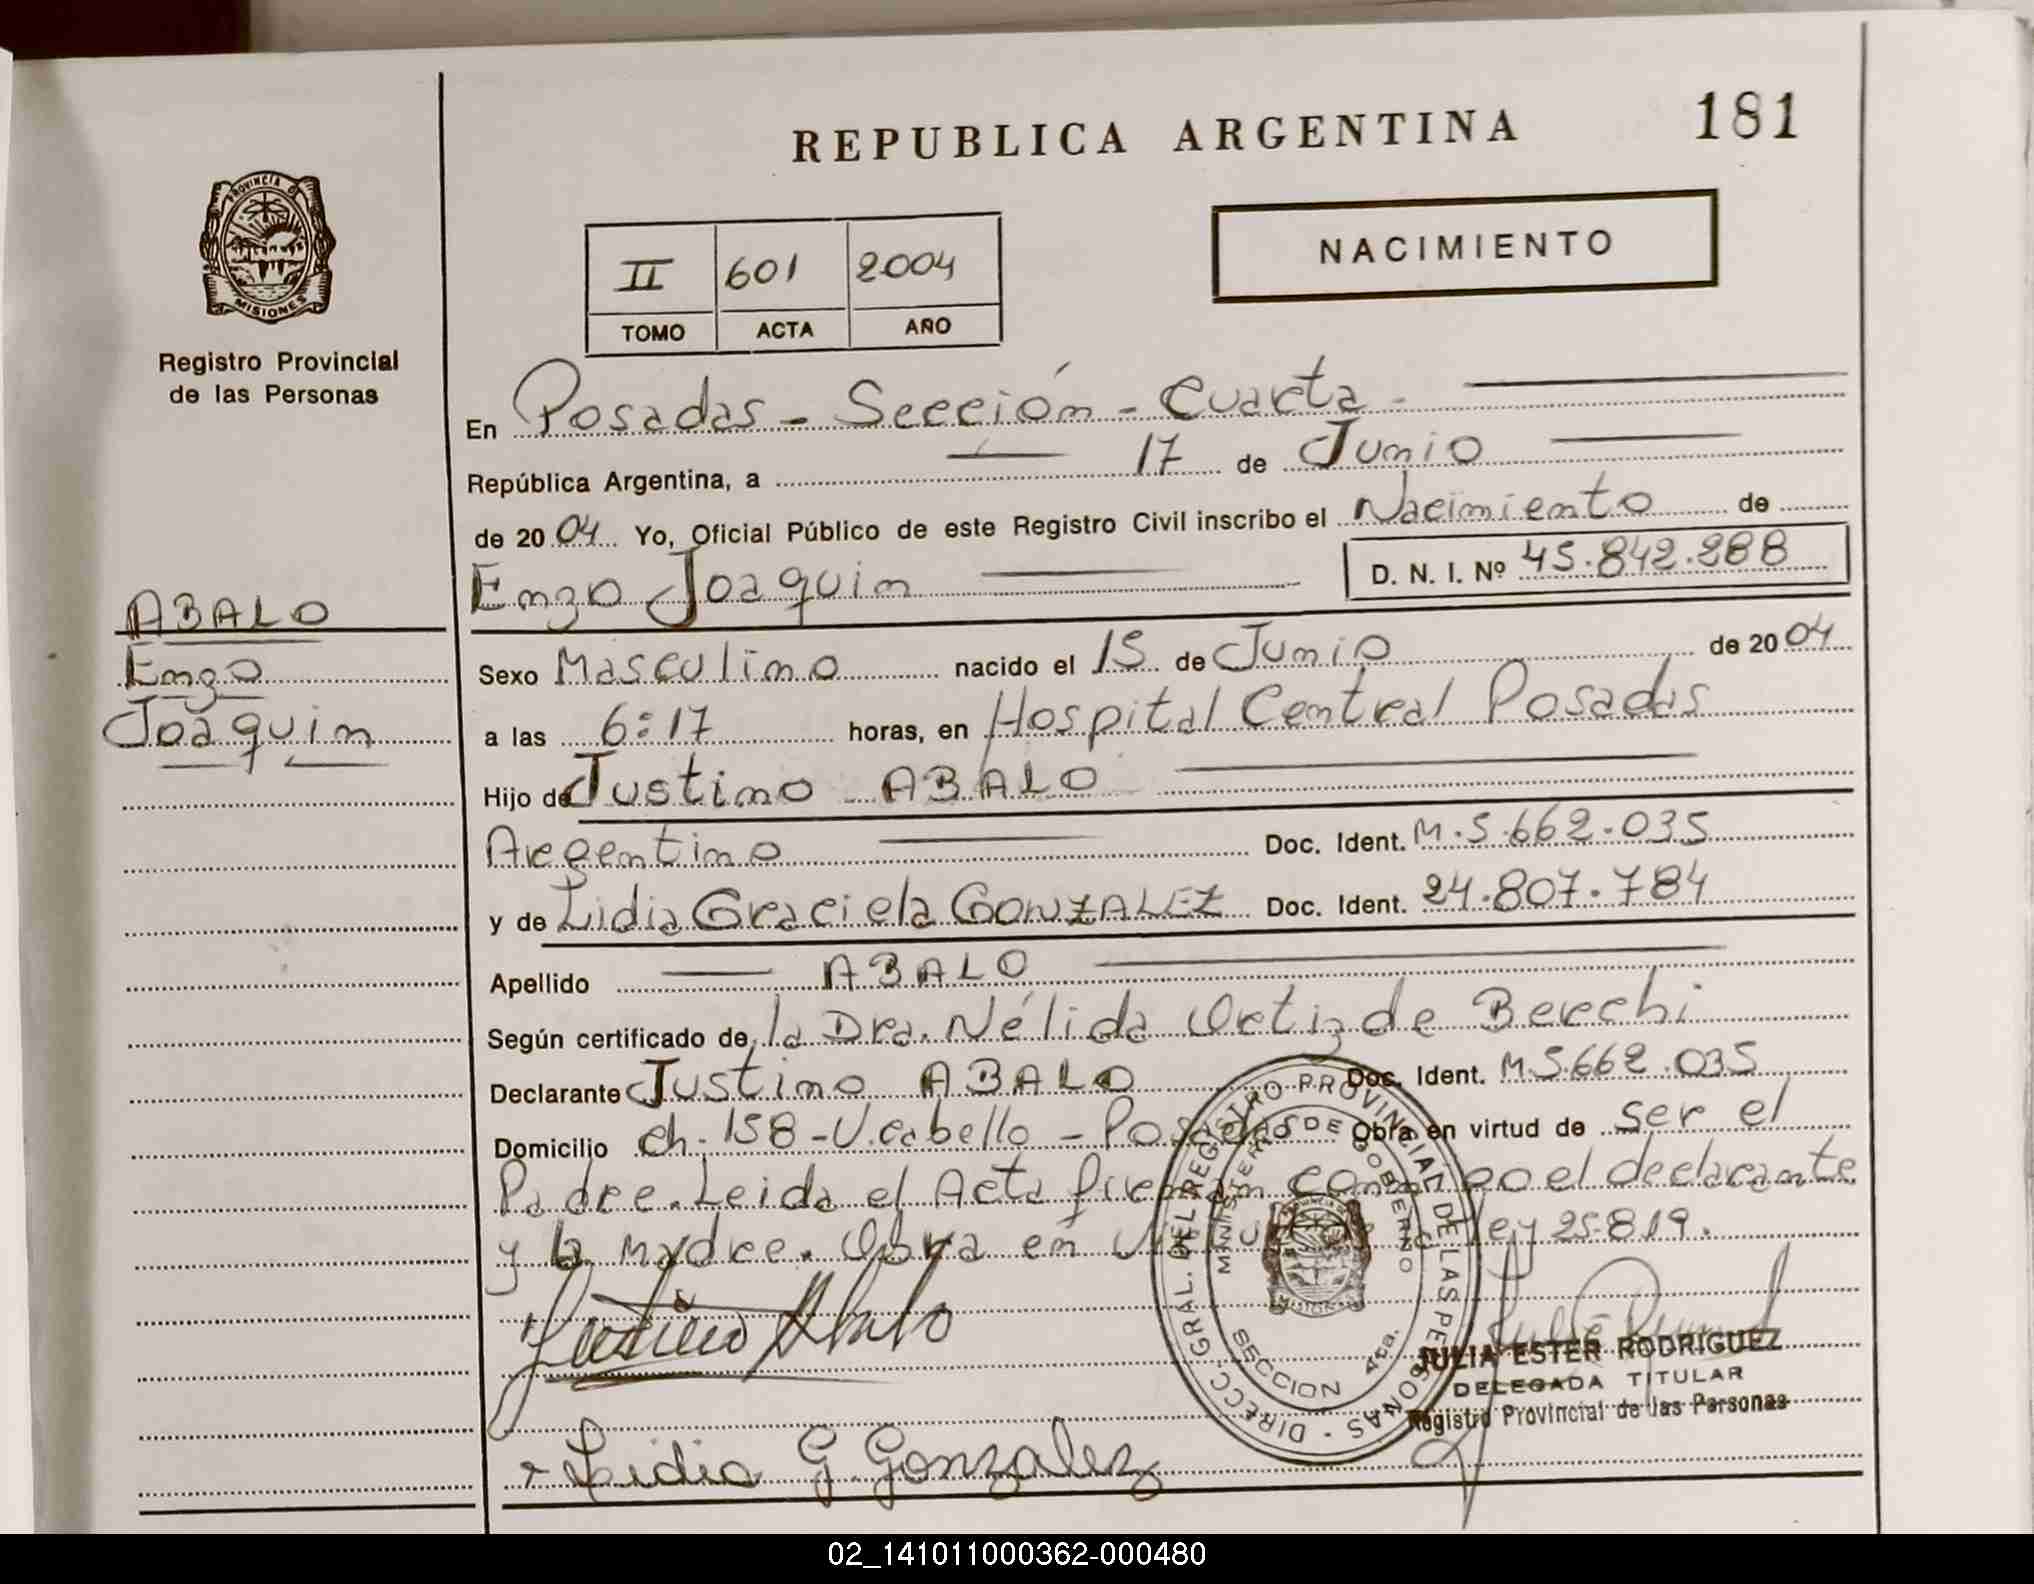 REPUBLICA ARGENTINA
181
PROVINCIA D
MISIONES
Registro Provincial
de las Personas
NACIMIENTO
II 601 2004
TOMO ACTA AÑO
En Posadas - Sección - Cuarta -
República Argentina, a 17 de Junio
de 2004 Yo, Oficial Público de este Registro Civil inscribo el Nacimiento de
Enzo Joaquin D. N. I. Nº 45.842.288
ABALO
Enzo
Joaquin
Sexo Masculino nacido el 15 de Junio de 2004
a las 6:17 horas, en Hospital Central Posadas
Hijo de Justino ABALO
Argentino Doc. Ident. M.5.662.035
y de Lidia Graciela GONZALEZ Doc. Ident. 24.807.784
Apellido ABALO
Según certificado de la Dra. Nélida Ortiz de Berchi
Declarante Justino ABALO Doc. Ident. M.5.662.035
Domicilio Ch. 158 - V. Cabello - Posadas Obra en virtud de ser el
Padre. Leida el Acta firman conmigo el declarante
y la madre. Obra en ley 25.819.
Justino Abalo
DIRECC. GRAL. DEL REGISTRO PROVINCIAL DE LAS PERSONAS
MINISTERIO DE GOBIERNO
SECCION 4ta.
JULIA ESTER RODRIGUEZ
DELEGADA TITULAR
Registro Provincial de las Personas
Lidia G Gonzalez
02_141011000362-000480